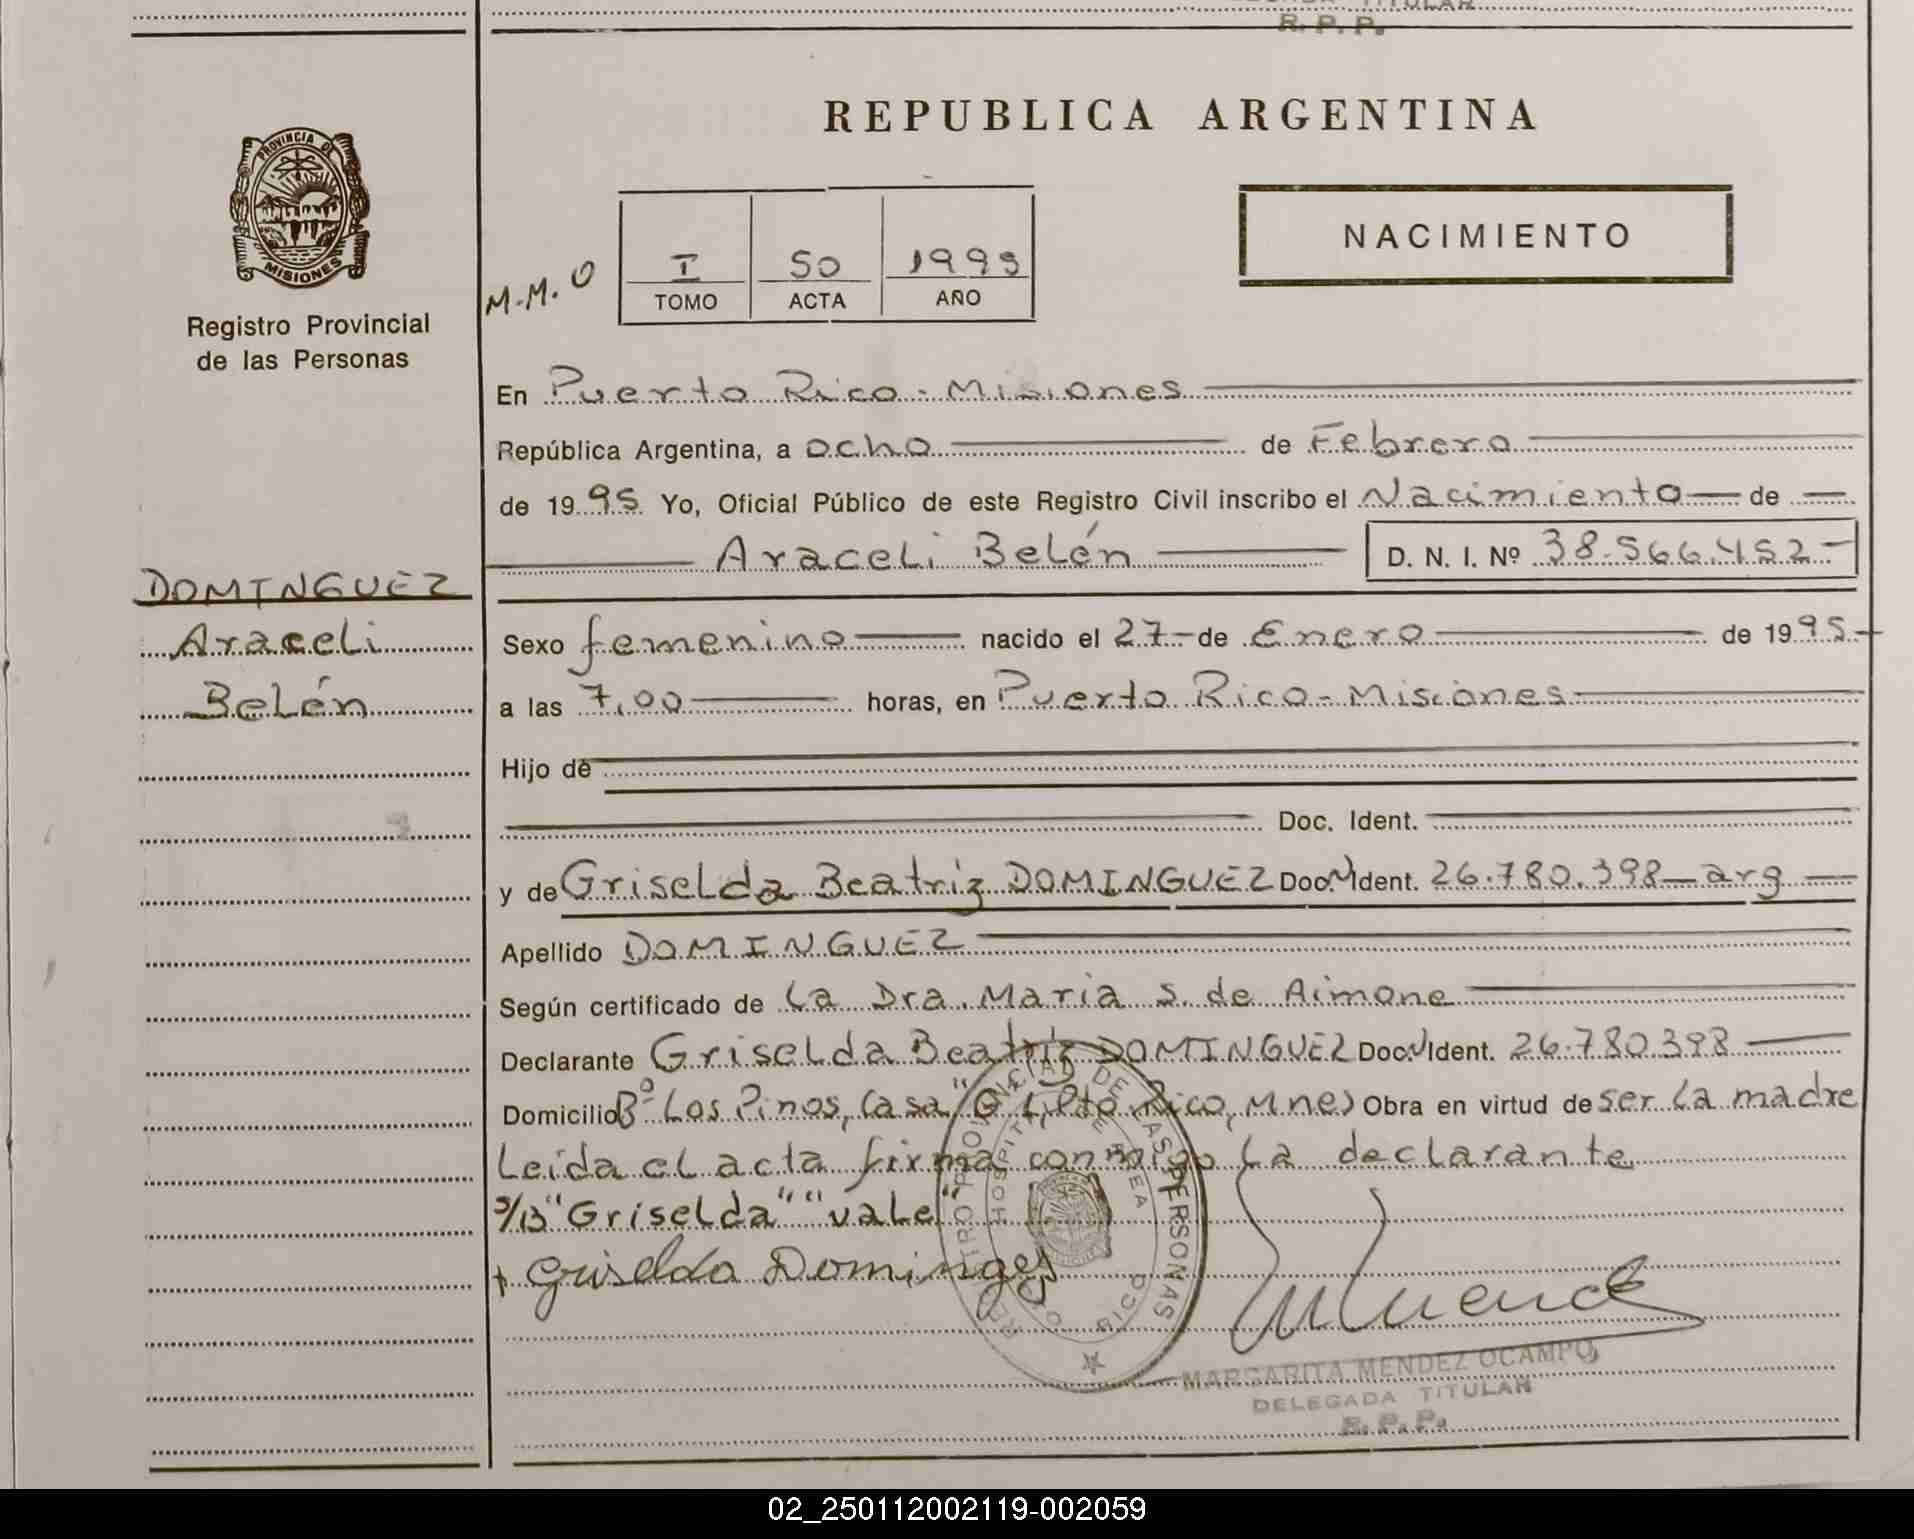 TITULAR
R. P. P.
REPUBLICA ARGENTINA
PROVINCIA DE
MISIONES
Registro Provincial
de las Personas
M.M.O
I 50 1995
TOMO ACTA AÑO
NACIMIENTO
En Puerto Rico - Misiones
República Argentina, a ocho de Febrero
de 1995 Yo, Oficial Público de este Registro Civil inscribo el Nacimiento de
Araceli Belén D. N. I. Nº 38.566.452-
DOMINGUEZ
Araceli
Belén
Sexo femenino nacido el 27 de Enero de 1995
a las 7,00 horas, en Puerto Rico - Misiones
Hijo de
Doc. Ident.
y de Griselda Beatriz DOMINGUEZ Doc. Ident. 26.780.398 - arg
Apellido DOMINGUEZ
Según certificado de la Dra. Maria S. de Aimone
Declarante Griselda Beatriz DOMINGUEZ Doc. Ident. 26.780.398
Domicilio Bº Los Pinos, Casa Pto Rico, Mnes Obra en virtud de ser la madre
Leída el acta firma conmigo la declarante
S/B "Griselda" "vale"
Griselda Dominges
REGISTRO PROVINCIAL DE LAS PERSONAS
HOSPITAL DE AREA
PTO RICO
MARGARITA MENDEZ OCAMPO
DELEGADA TITULAR
R. P. P.
02_250112002119-002059